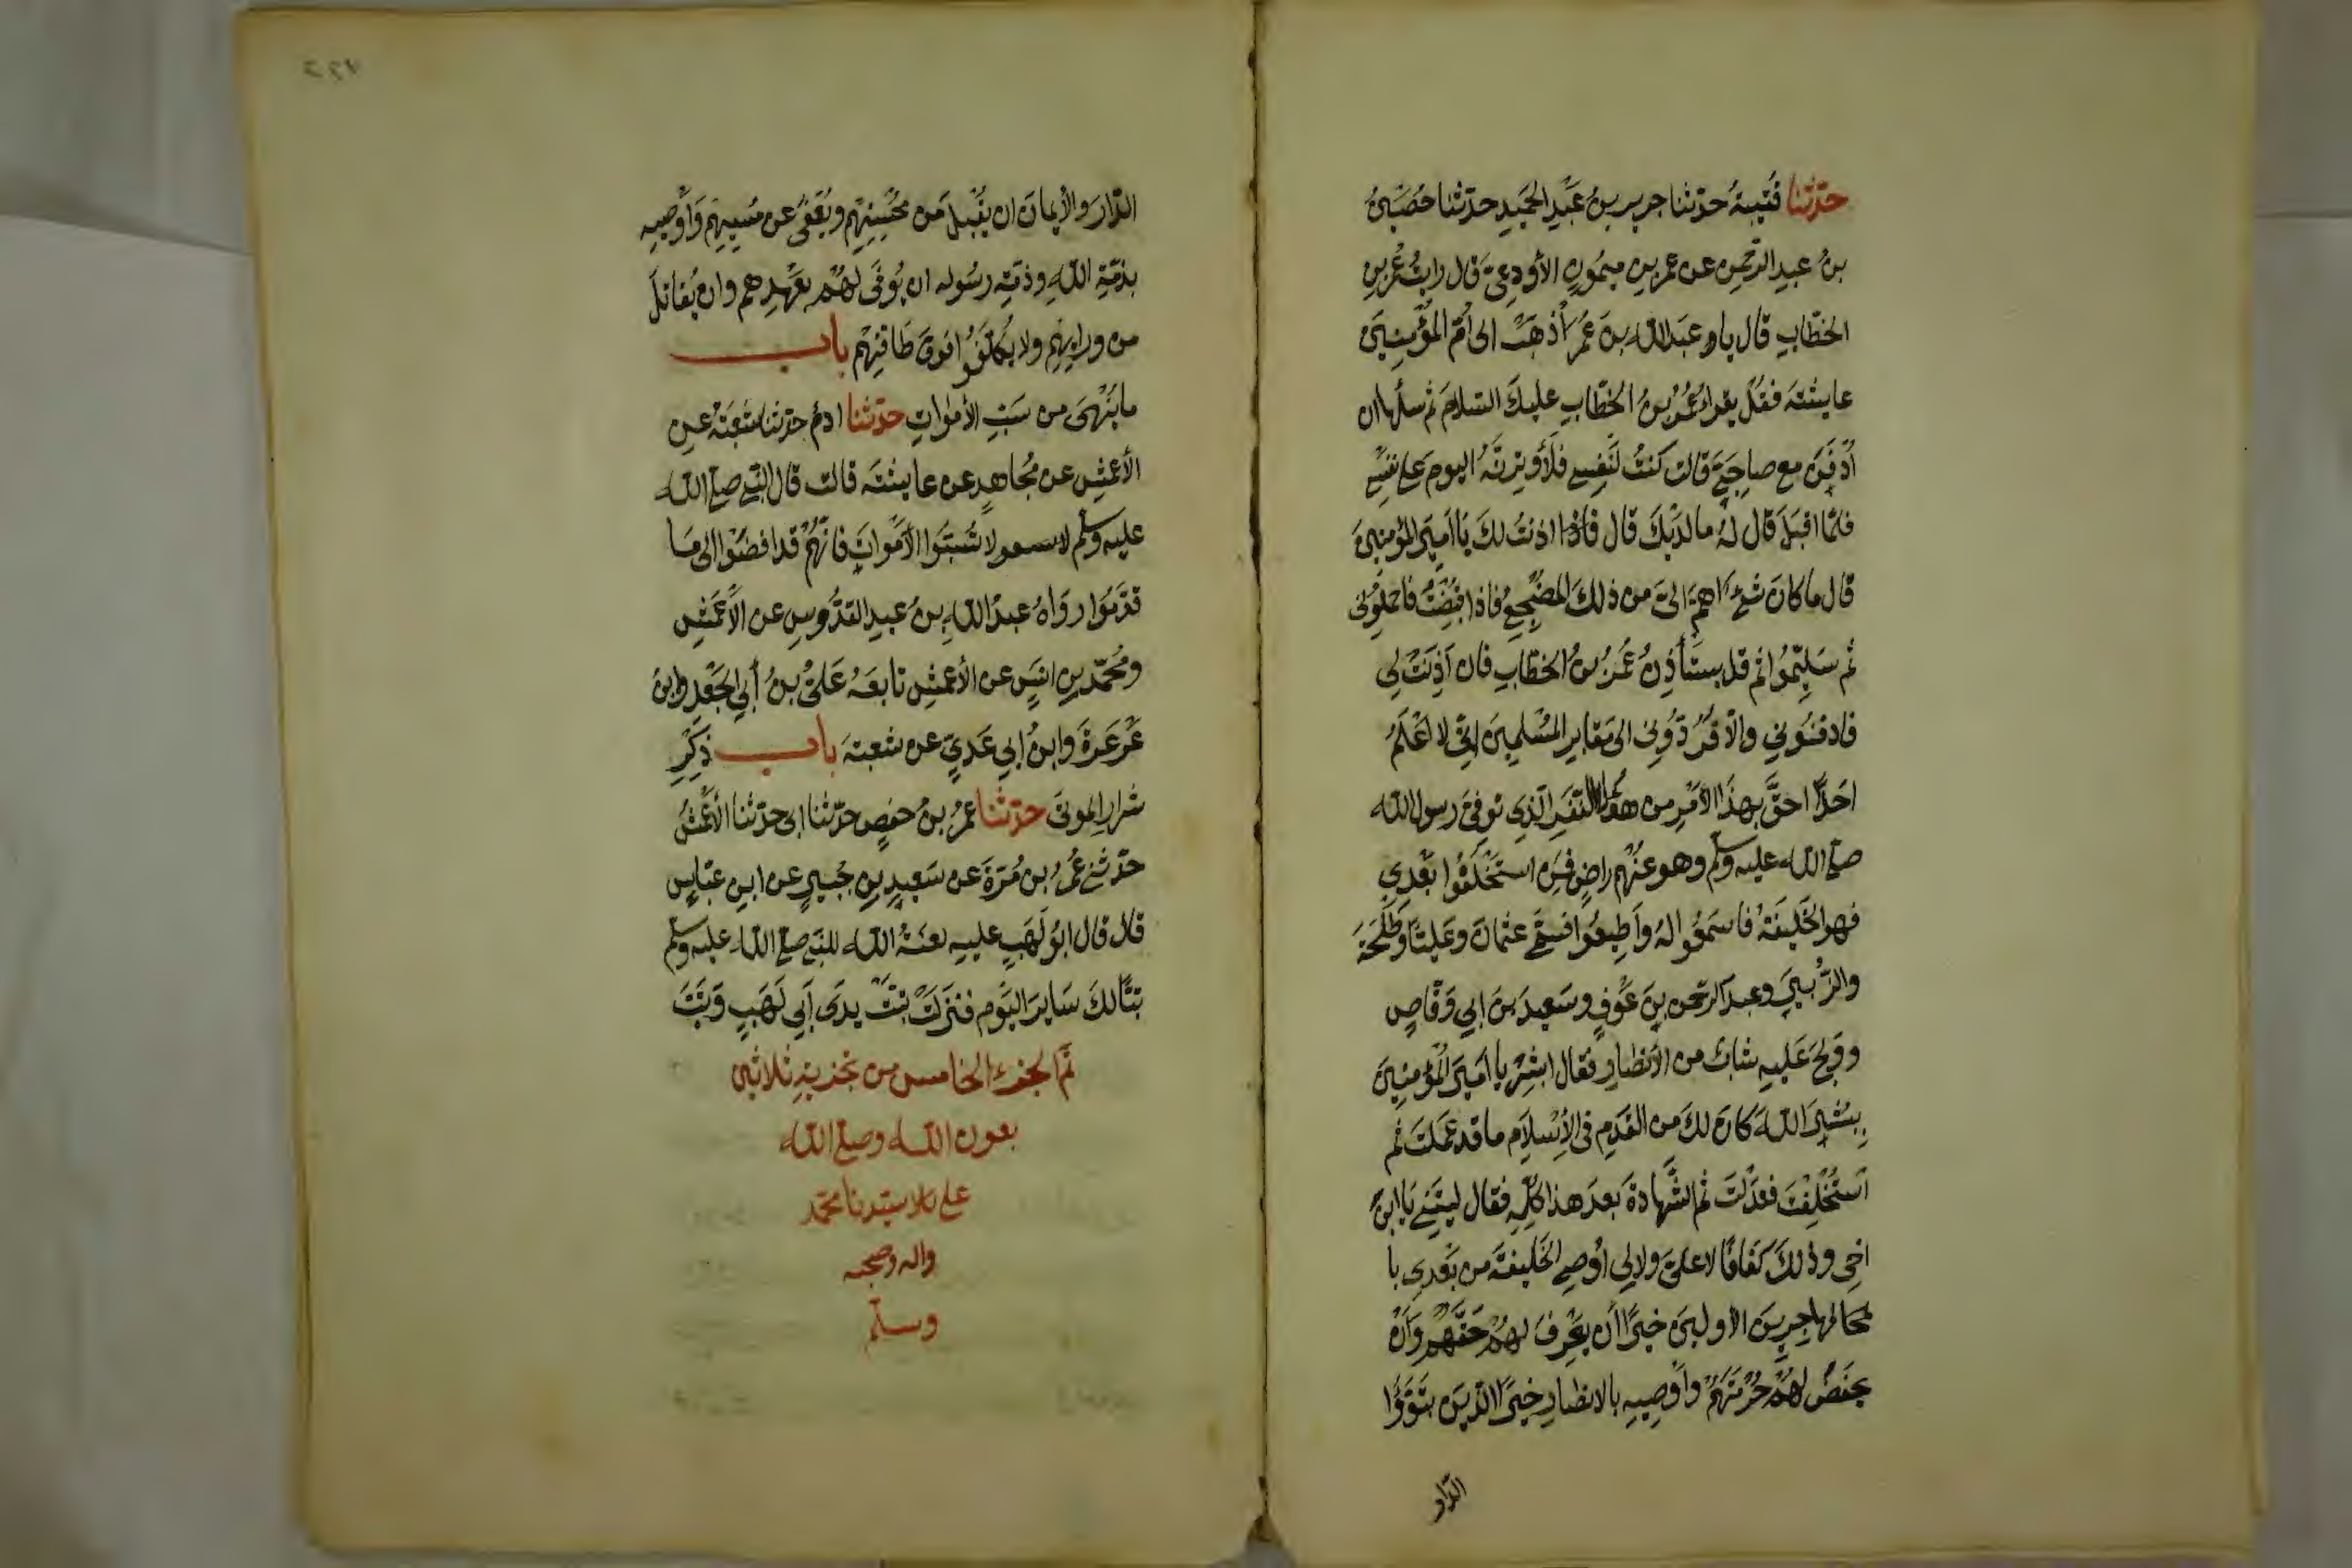 حدّثنا قُتَيبةُ حدّثنا جرير بنُ عَبْدِ الحَمِيدِ حدّثنا حُصَيْنُ
بنُ عبدِ الرّحمنِ عن عمرِ بنِ ميمُونٍ الأودِيّ قال رايتُ عُمَر بن
الخطّابِ قال يا عبدَ اللهِ بنَ عُمَرَ أذهَبْ الى أمّ المؤْمِنِينَ
عايشَةَ فقُل يقراءُ عُمَرُ بنُ الخطّابِ عليكِ السّلامَ ثم سلْها ان
أُدْفَنَ مع صاحِبَيَّ قالت كنتُ لنَفْسِي فَلأوثِرَنَّهُ اليومَ على نفسِي
فلمّا اقبَلَ قال لهُ ما لدَيْكَ قال اذِنَتْ لكَ يَا أميرَ المؤمنِينَ
قال ما كانَ شئٌ اهمَّ اليّ من ذلكَ المَضْجَعِ فاذا قُبِضْتُ فاحمِلُوني
ثم سَلِّمُوا ثم قل يستأذِنُ عُمَرُ بنُ الخطّابِ فان اَذِنَتْ لِي
فادفنُوني والّا فَرُدُّوني الى مَقابرِ المُسْلمِينَ انّي لا اَعْلَمُ
احَدًا احقَّ بهذَا الأَمْرِ من هؤلاء النّفَرِ الّذِينَ تُوفّيَ رسول الله
صلى الله عليه وسلم وهو عنْهُم راضٍ فمَن استخْلَفُوا بَعْدِي
فهو الخَليفَةُ فاسمَعُوا لهُ وَأطِيعُوا فسمّى عثمانَ وعَليّا وَطَلْحَةَ
والزُّبَيْرَ وعبدَ الرّحمن بنَ عَوْفٍ وسَعيدَ بنَ ابي وَقّاصٍ
ووَلَجَ عَليهِ شابٌ من الأنصارِ فقال ابشِرْ يا أميرَ المُؤمنِينَ
بِبُشْرَى اللهِ كانَ لكَ من القَدَمِ في الإسْلَامِ ما قد عَمِلتَ ثم
استُخْلِفْتَ فعَدَلْتَ ثم الشَّهادةُ بعدَ هذا كلّهِ فقال ليتَنِي يَا ابنَ
اخِي وذلكَ كَفَافًا لا عليَّ ولا لي اُوصِي الخَليفةَ من بَعْدِي با
لمهاجِرِينَ الأوليينَ خَيرًا أن يَعْرِفَ لهُمْ حَقَّهُمْ وَاَنْ
يحفَظَ لهُمْ حُرْمَتَهُمْ واُوصِيهِ بالانصارِ خَيرًا الّذِينَ تبَوَّؤُا
الدّار
٢٤٧
الدّارَ والأيمانَ ان يُقْبَلَ من مُحْسِنِهِم ويُعْفَى عن مُسِيئهِم وَاُوصِيهِ
بذمّةِ اللهِ وذمّةِ رسُوله ان يُوفَى لهُمْ بعَهْدِهم وان يُقاتلَ
من ورايِهِمْ ولا يُكَلّفُوا فوقَ طَاقتِهِمْ باب
ما يُنْهَى من سَبِّ الأمْوَاتِ حدّثنا ادمُ حدّثنا شُعبَةُ عنِ
الأعمَشِ عن مُجاهدٍ عن عايشَةَ قالت قال النّبي صلى الله
عليه وسلم لا تَسُبُّوا الأَمْوَاتَ فانّهُمْ قد افضَوْا الى مَا
قدّمُوا رواهُ عبدُ اللهِ بنُ عبدِ القدُّوسِ عن الأَعمَشِ
ومُحمّدُ بن انَسٍ عن الأعمَشِ تابعَهُ عَلىُّ بنُ أبي الجَعْدِ وابنُ
عَرْعَرَةَ وابنُ ابي عَديّ عن شعبةَ باب ذِكْرِ
شرارِ الموتَى حدّثنا عُمَرُ بنُ حفصٍ حدّثنا ابي حدّثنا الأعْمَشُ
حدّثني عُمَرُ بن مُرّةَ عن سَعيدِ بنِ جُبَيرٍ عن ابنِ عبّاسٍ
قال قال ابُو لَهَبٍ عليهِ لعنَةُ الله للنبي صلى الله عليه وسلم
تبّا لكَ سَايرَ اليَوْمِ فنزلَتْ تبّتْ يدَى اَبِي لَهَبٍ وَتَبَّ
تمّ الجزء الخامس من تجزيةِ ثلاثين
بعون الله وصلى الله
على سيّدنا محمّد
واله وصحبه
وسلّم